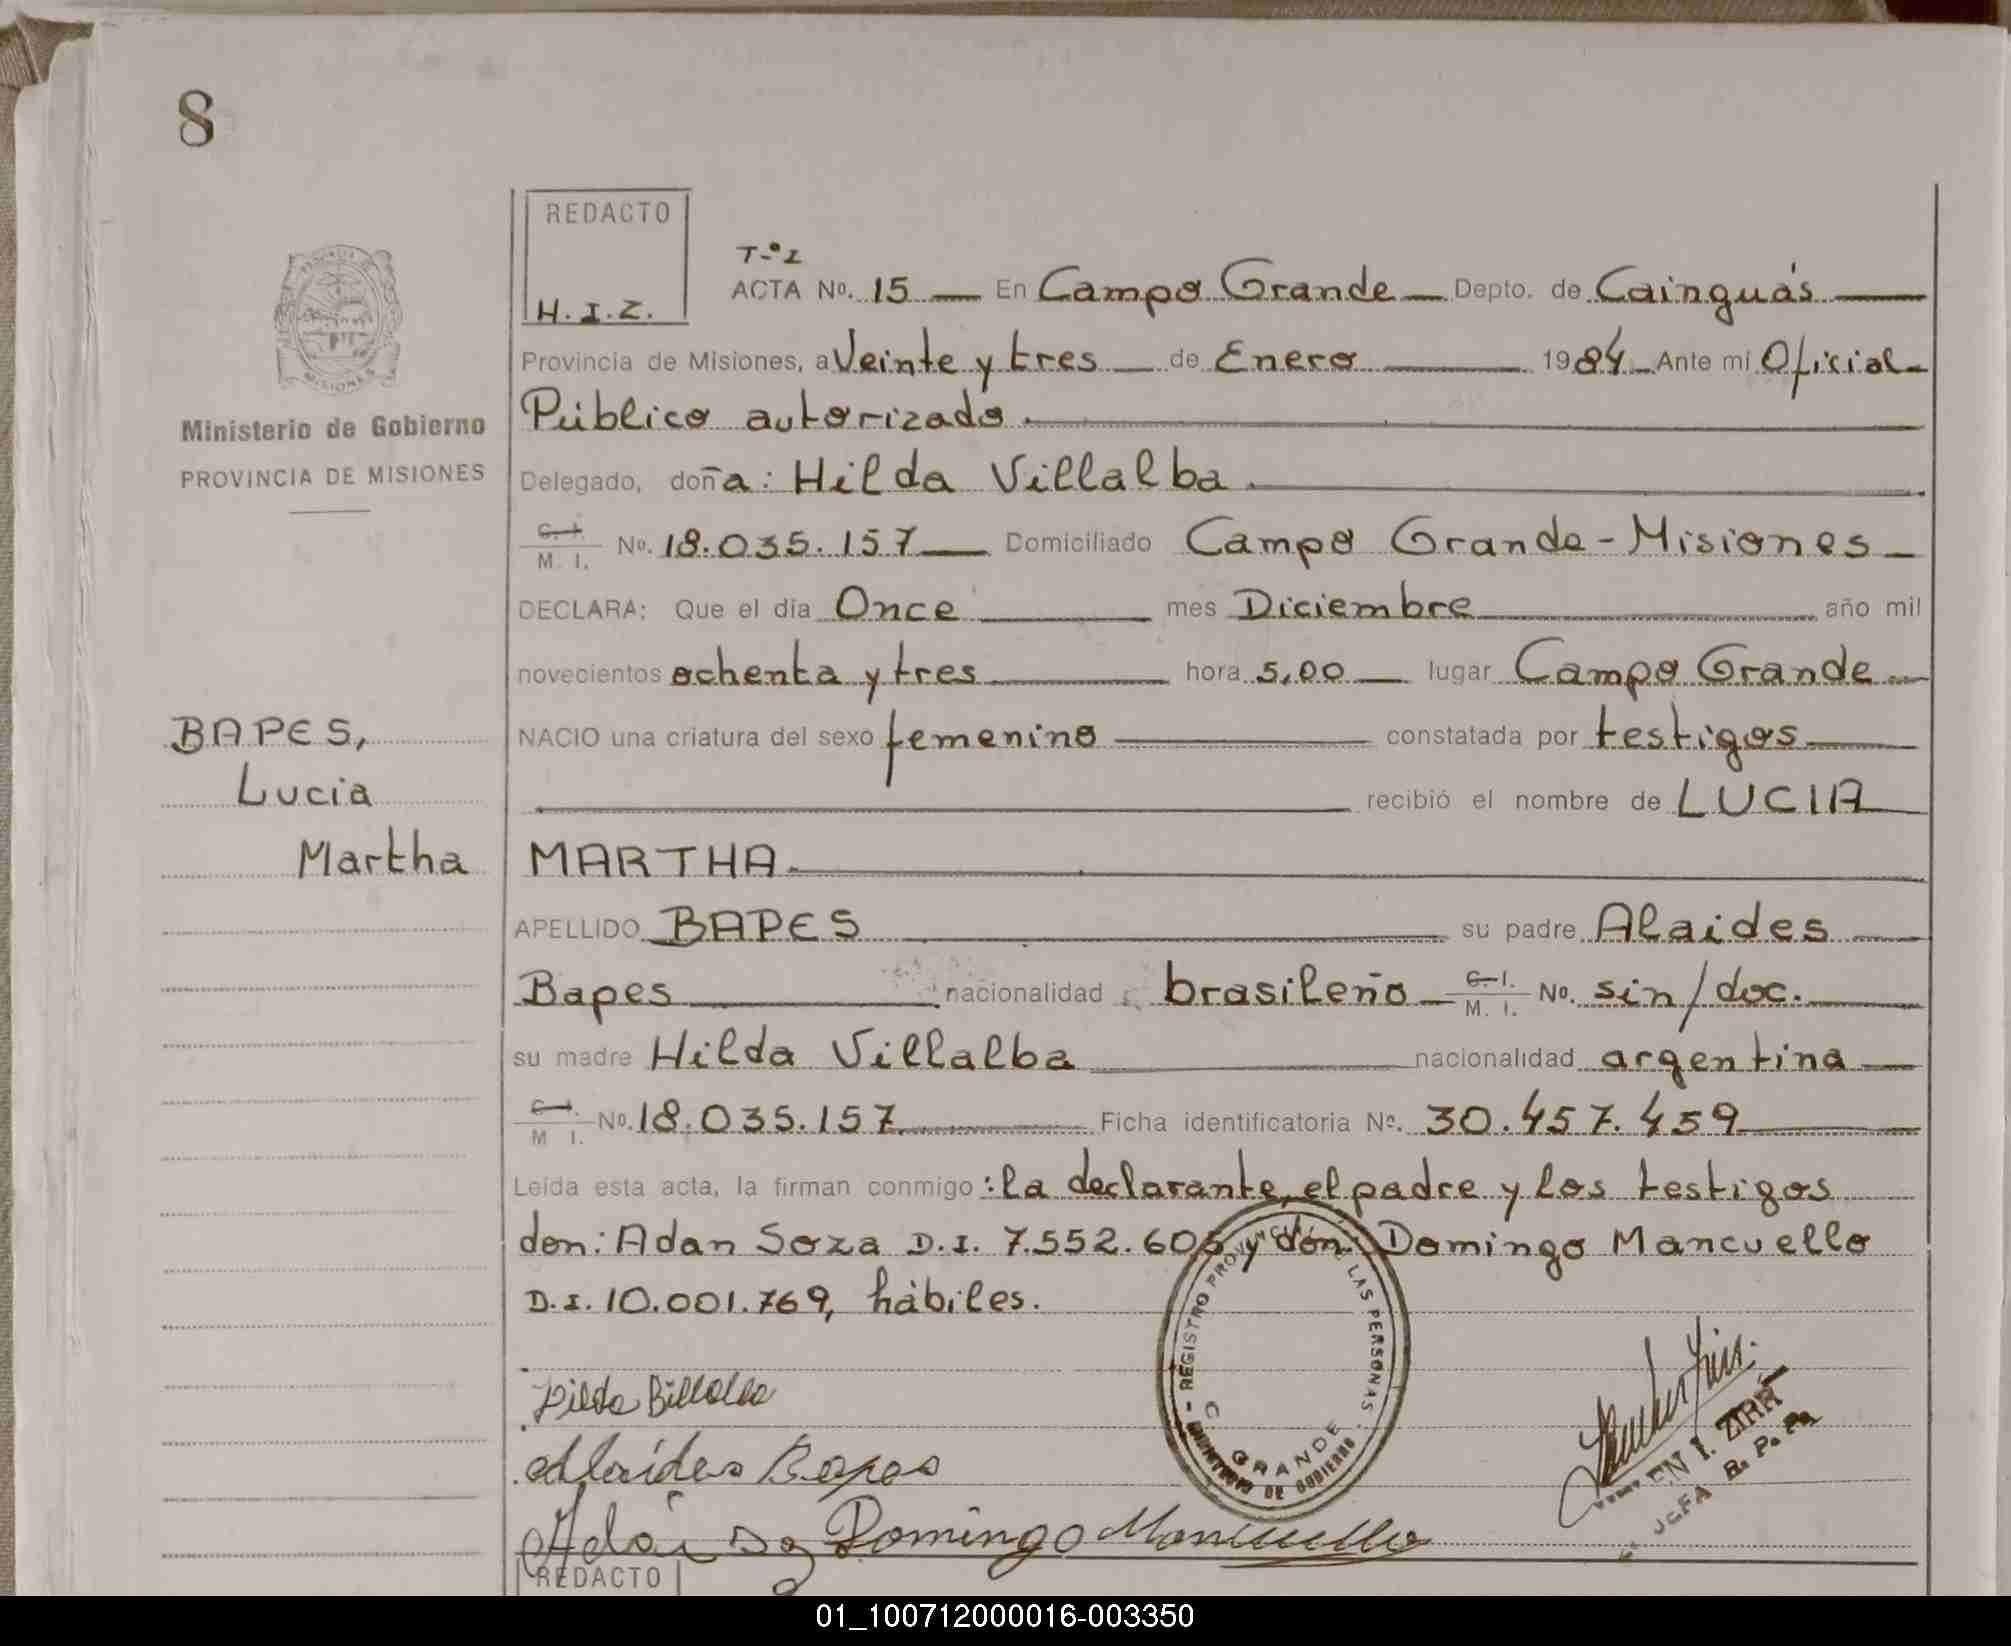 8
REDACTO
H.I.Z.
T.º I
ACTA No. 15 En Campo Grande Depto. de Cainguás
Provincia de Misiones, a Veinte y tres de Enero 1984 Ante mi Oficial
Público autorizado
Delegado, doña: Hilda Villalba
C. I. M. I. No. 18.035.157 Domiciliado Campo Grande-Misiones
DECLARA: Que el día Once mes Diciembre año mil
novecientos ochenta y tres hora 5,00 lugar Campo Grande
NACIO una criatura del sexo femenino constatada por testigos
recibió el nombre de LUCIA
MARTHA
APELLIDO BAPES su padre Alaides
Bapes nacionalidad brasileño C. I. M. I. No. sin/doc.
su madre Hilda Villalba nacionalidad argentina
C. I. M. I. No. 18.035.157 Ficha identificatoria No. 30.457.459
Leída esta acta, la firman conmigo: la declarante, el padre y los testigos
don: Adan Soza D.I. 7.552.605 y don: Domingo Mancuello
D.I. 10.001.769, hábiles.
MISIONES
Ministerio de Gobierno
PROVINCIA DE MISIONES
BAPES,
Lucia
Martha
Hilda Billalba
Alaídes Bapes
Adán
Domingo Mancuello
REGISTRO PROVINCIAL DE LAS PERSONAS
C GRANDE
MINISTERIO DE GOBIERNO
I. ZIRR
JEFA R. P. P.
REDACTO
01_100712000016-003350